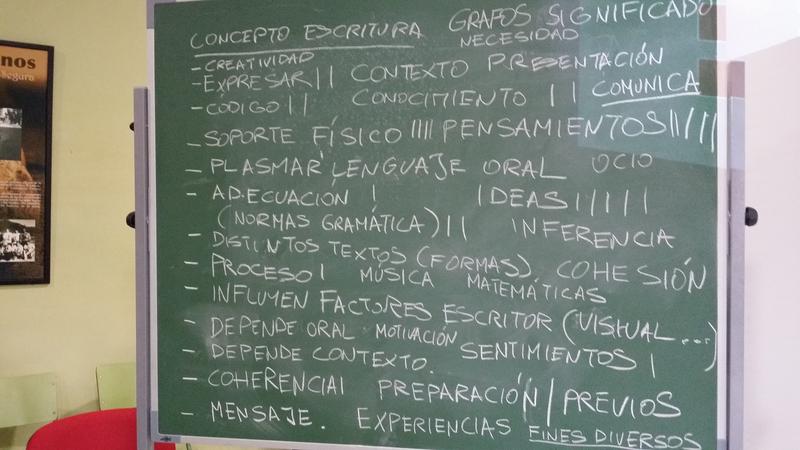 CONCEPTO ESCRITURA GRAFOS SIGNIFICADO
NECESIDAD
- CREATIVIDAD
- EXPRESAR || CONTEXTO PRESENTACIÓN
- CÓDIGO || CONOCIMIENTO || COMUNICA
- SOPORTE FÍSICO |||| PENSAMIENTOS |||||
- PLASMAR LENGUAJE ORAL OCIO
- ADECUACIÓN | IDEAS ||||||
(NORMAS GRAMÁTICA) || INFERENCIA
- DISTINTOS TEXTOS (FORMAS) COHESIÓN
- PROCESO | MÚSICA MATEMÁTICAS
- INFLUYEN FACTORES ESCRITOR (VISUAL...)
- DEPENDE ORAL MOTIVACIÓN
- DEPENDE CONTEXTO. SENTIMIENTOS |
- COHERENCIA | PREPARACIÓN / PREVIOS
- MENSAJE. EXPERIENCIAS FINES DIVERSOS
nos
Segura